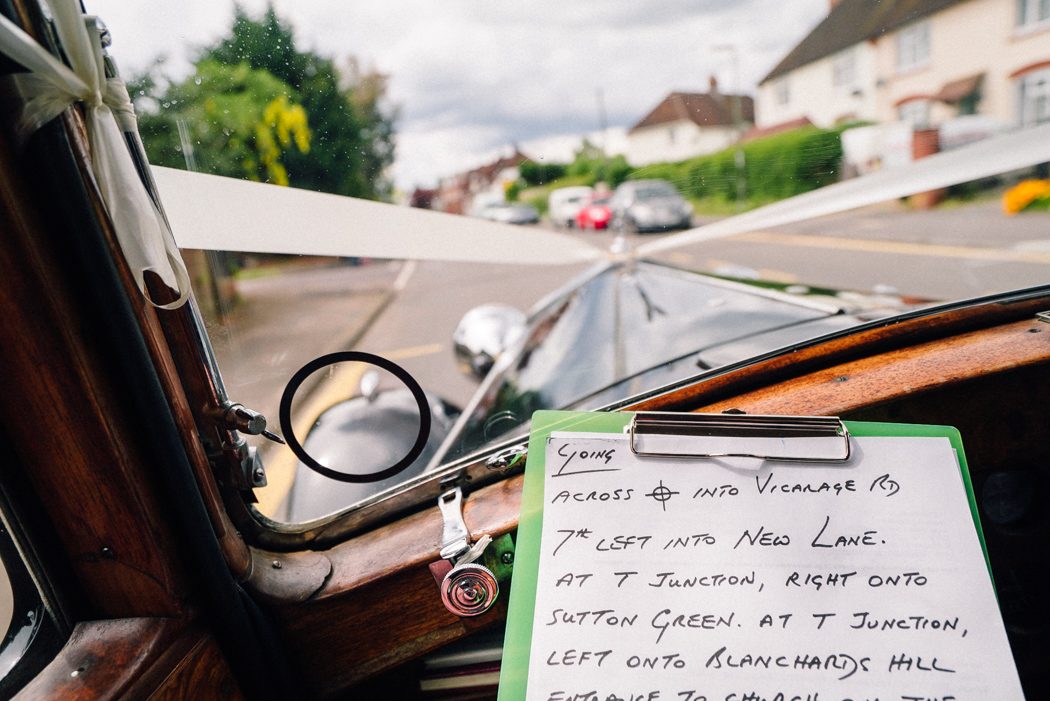 GOING
ACROSS ⌖ INTO VICARAGE RD
7th LEFT INTO NEW LANE.
AT T JUNCTION, RIGHT ONTO
SUTTON GREEN. AT T JUNCTION,
LEFT ONTO BLANCHARDS HILL
ENTRANCE TO CHURCH ON THE